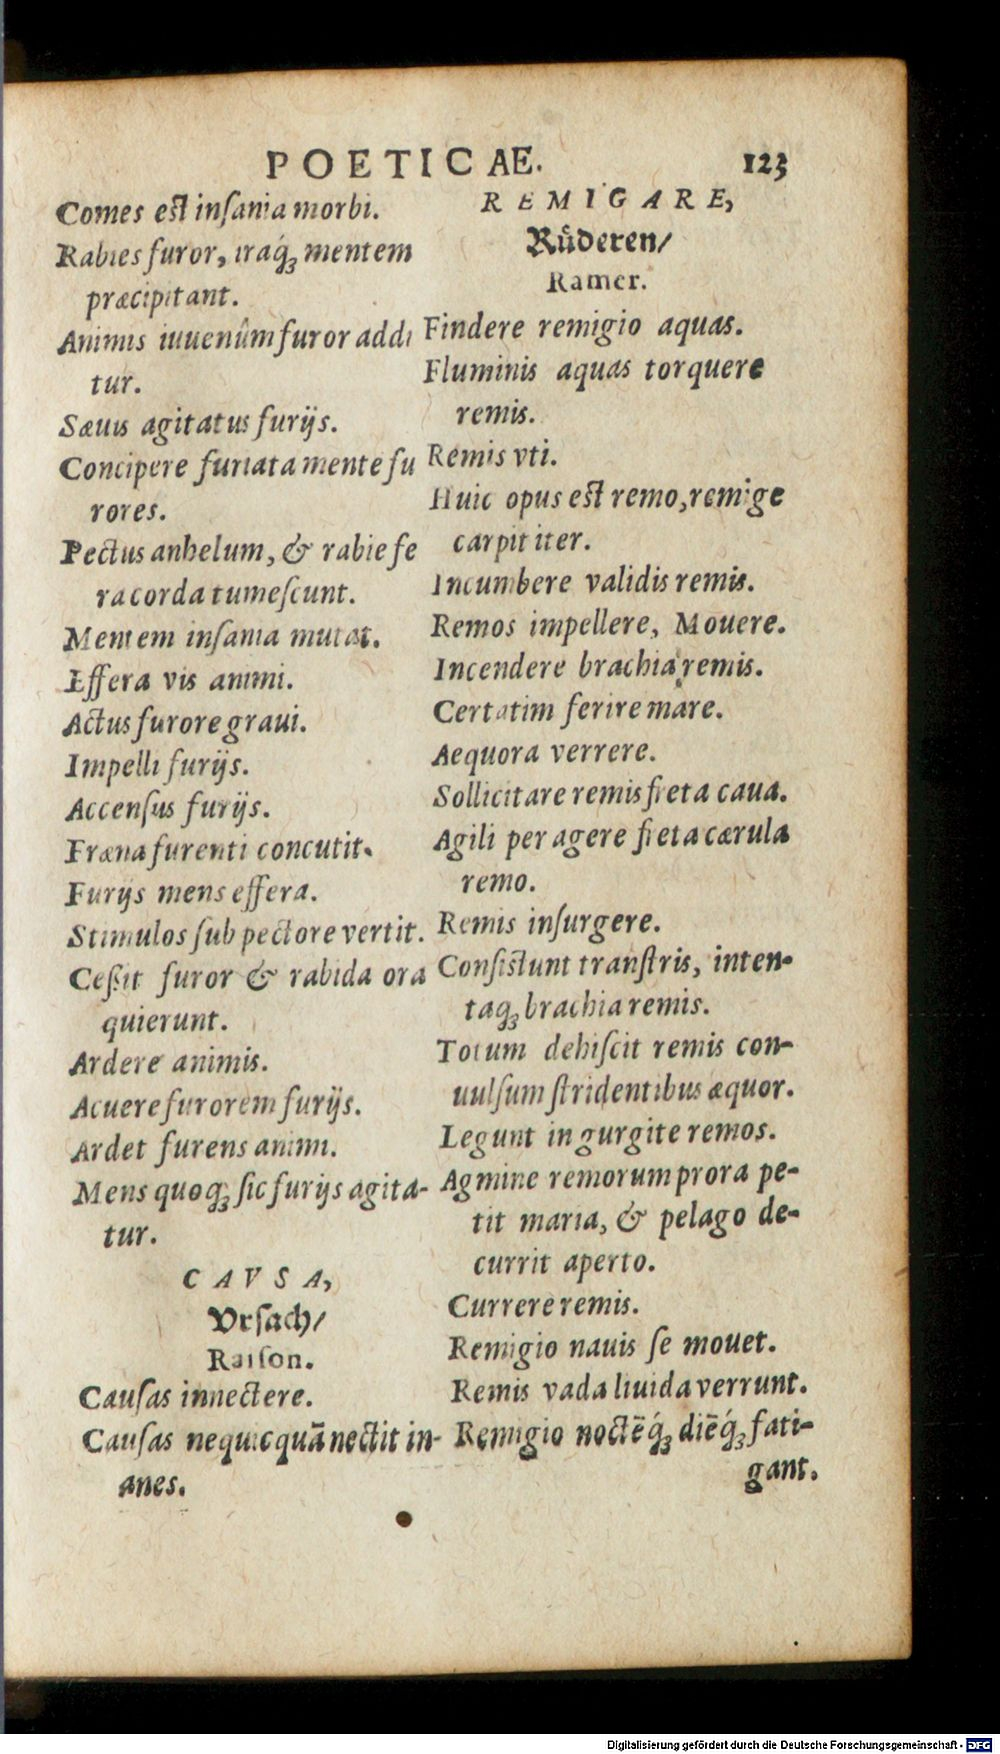 POETICAE. 123
Comes est inſania morbi.
Rabies furor, iraq́ꝫ mentem
præcipitant.
Animis iuuenûm furor addi
tur.
Sæuis agitatus furijs.
Concipere furiata mente fu
rores.
Pectus anhelum, & rabie fe
ra corda tumeſcunt.
Mentem inſania mutat.
Effera vis animi.
Actus furore graui.
Impelli furijs.
Accenſus furijs.
Fræna furenti concutit.
Furijs mens effera.
Stimulos ſub pectore vertit.
Ceſsit furor & rabida ora
quierunt.
Ardere animis.
Acuere furorem furijs.
Ardet furens animi.
Mens quoqꝫ ſic furijs agita-
tur.
CAVSA,
Vrſach/
Raiſon.
Cauſas innectere.
Cauſas nequicquā nectit in-
anes.
REMIGARE,
Růderen/
Ramer.
Findere remigio aquas.
Fluminis aquas torquere
remis.
Remis vti.
Huic opus est remo, remige
carpit iter.
Incumbere validis remis.
Remos impellere, Mouere.
Incendere brachia remis.
Certatim ferire mare.
Aequora verrere.
Sollicitare remis freta caua.
Agili per agere freta cærula
remo.
Remis inſurgere.
Conſistunt tranſtris, inten-
taqꝫ brachia remis.
Totum dehiſcit remis con-
uulſum ſtridentibus æquor.
Legunt in gurgite remos.
Agmine remorum prora pe-
tit maria, & pelago de-
currit aperto.
Currere remis.
Remigio nauis ſe mouet.
Remis vada liuida verrunt.
Remigio noctēq́ꝫ diēq́ꝫ fati-
gant.
Digitalisierung gefördert durch die Deutsche Forschungsgemeinschaft - DFG